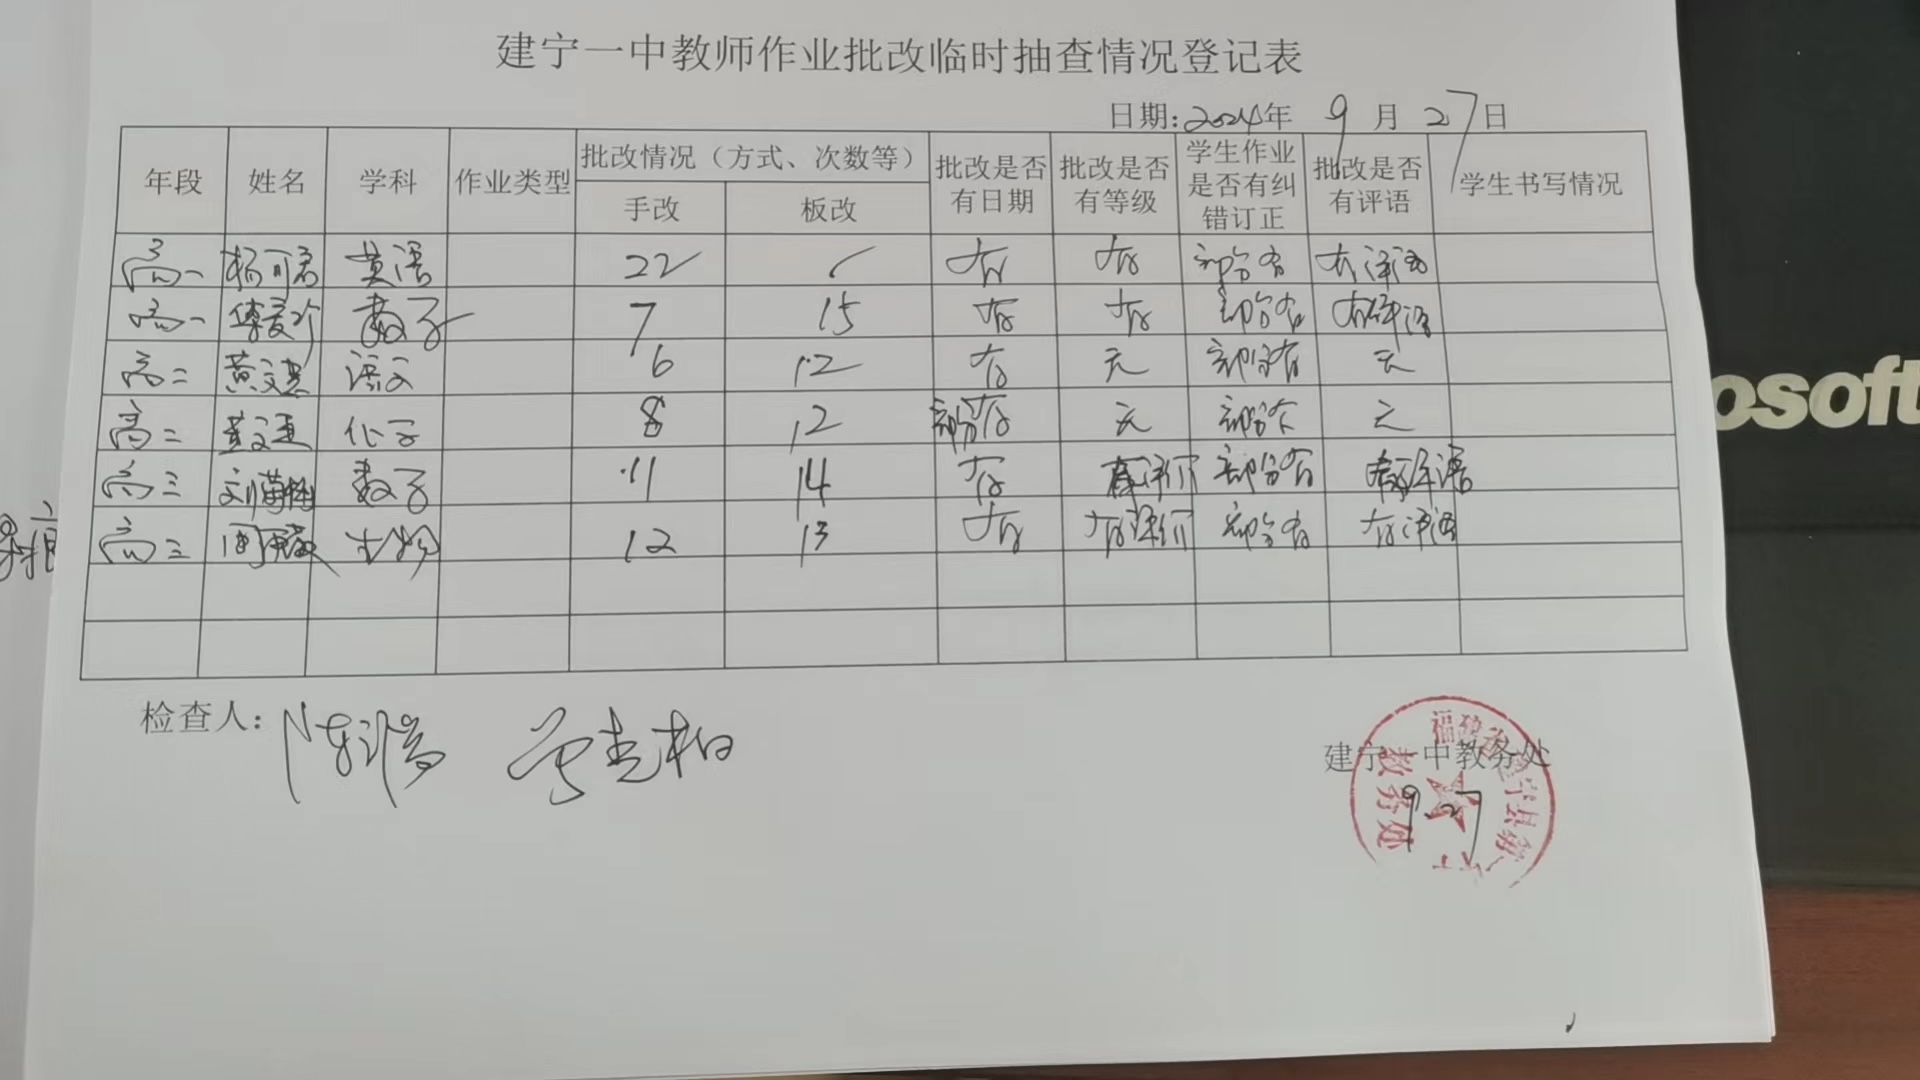 建宁一中教师作业批改临时抽查情况登记表
日期:2024年 9月 27日
年段 姓名 学科 作业类型 批改情况（方式、次数等） 手改 板改 批改是否有日期 批改是否有等级 学生作业是否有纠错订正 批改是否有评语 学生书写情况
高一 杨可君 英语 22 有 有 部分有 有评语
高一 数学 7 15 有 有 部分有 有评语
高二 语文 6 12 有 无 部分有 无
高二 化学 8 12 部分有 无 部分有 无
高三 数学 11 14 有 有评价 部分有 有评语
高三 生物 12 13 有 有评价 部分有 有评语
检查人:
建宁一中教务处
9.27
福建省建宁县第一中学
教务处
osoft